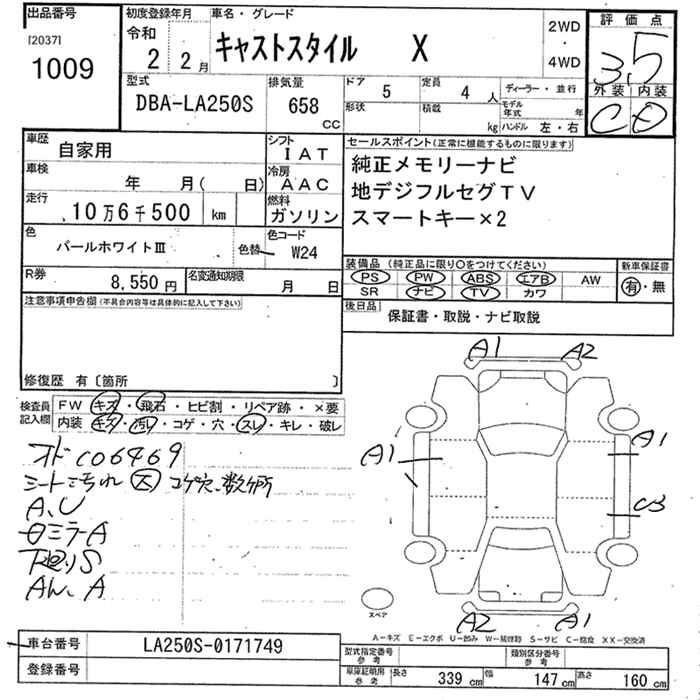 出品番号 初度登録年月 車名・グレード 評価点
[2037] 令和 2WD・4WD
1009 2年 2月 キャストスタイル X 3.5
型式 排気量 ドア 5 定員 4人 ディーラー・並行 外装 内装
DBA-LA250S 658 CC 形状 積載 kg モデル年式 年 C D
ハンドル 左・右
車歴 自家用 シフト IAT セールスポイント(正常に機能するものに限ります)
車検 年 月( 日) 冷房 AAC 純正メモリーナビ
走行 10万6千500 km 燃料 ガソリン 地デジフルセグTV
色 パールホワイトⅢ 色替 色コード W24 スマートキー×2
R券 8,550円 名変通知期限 月 日
装備品 (純正品に限り○をつけてください) 新車保証書
PS PW ABS エアB AW 有・無
SR ナビ TV カワ
注意事項申告欄(不具合内容等は具体的に記入して下さい)
後日品 保証書・取説・ナビ取説
修復歴 有〔箇所 〕
検査員記入欄 FW キズ・飛石・ヒビ割・リペア跡・×要
内装 キズ・汚レ・コゲ・穴・スレ・キレ・破レ
オドC06469
シート汚れ 大 コゲ穴、数ヶ所
A、U
ロミラーA
下廻りS
AW、A
A1 A2
A1 A1
C3
A2 A1
スペア
A−キズ E−エクボ U−凹み W−補修跡 S−サビ C−腐食 XX−交換済
車台番号 LA250S-0171749 型式指定番号 参考 類別区分番号 参考
登録番号 車庫証明用 参考 長さ 339 cm 幅 147 cm 高さ 160 cm